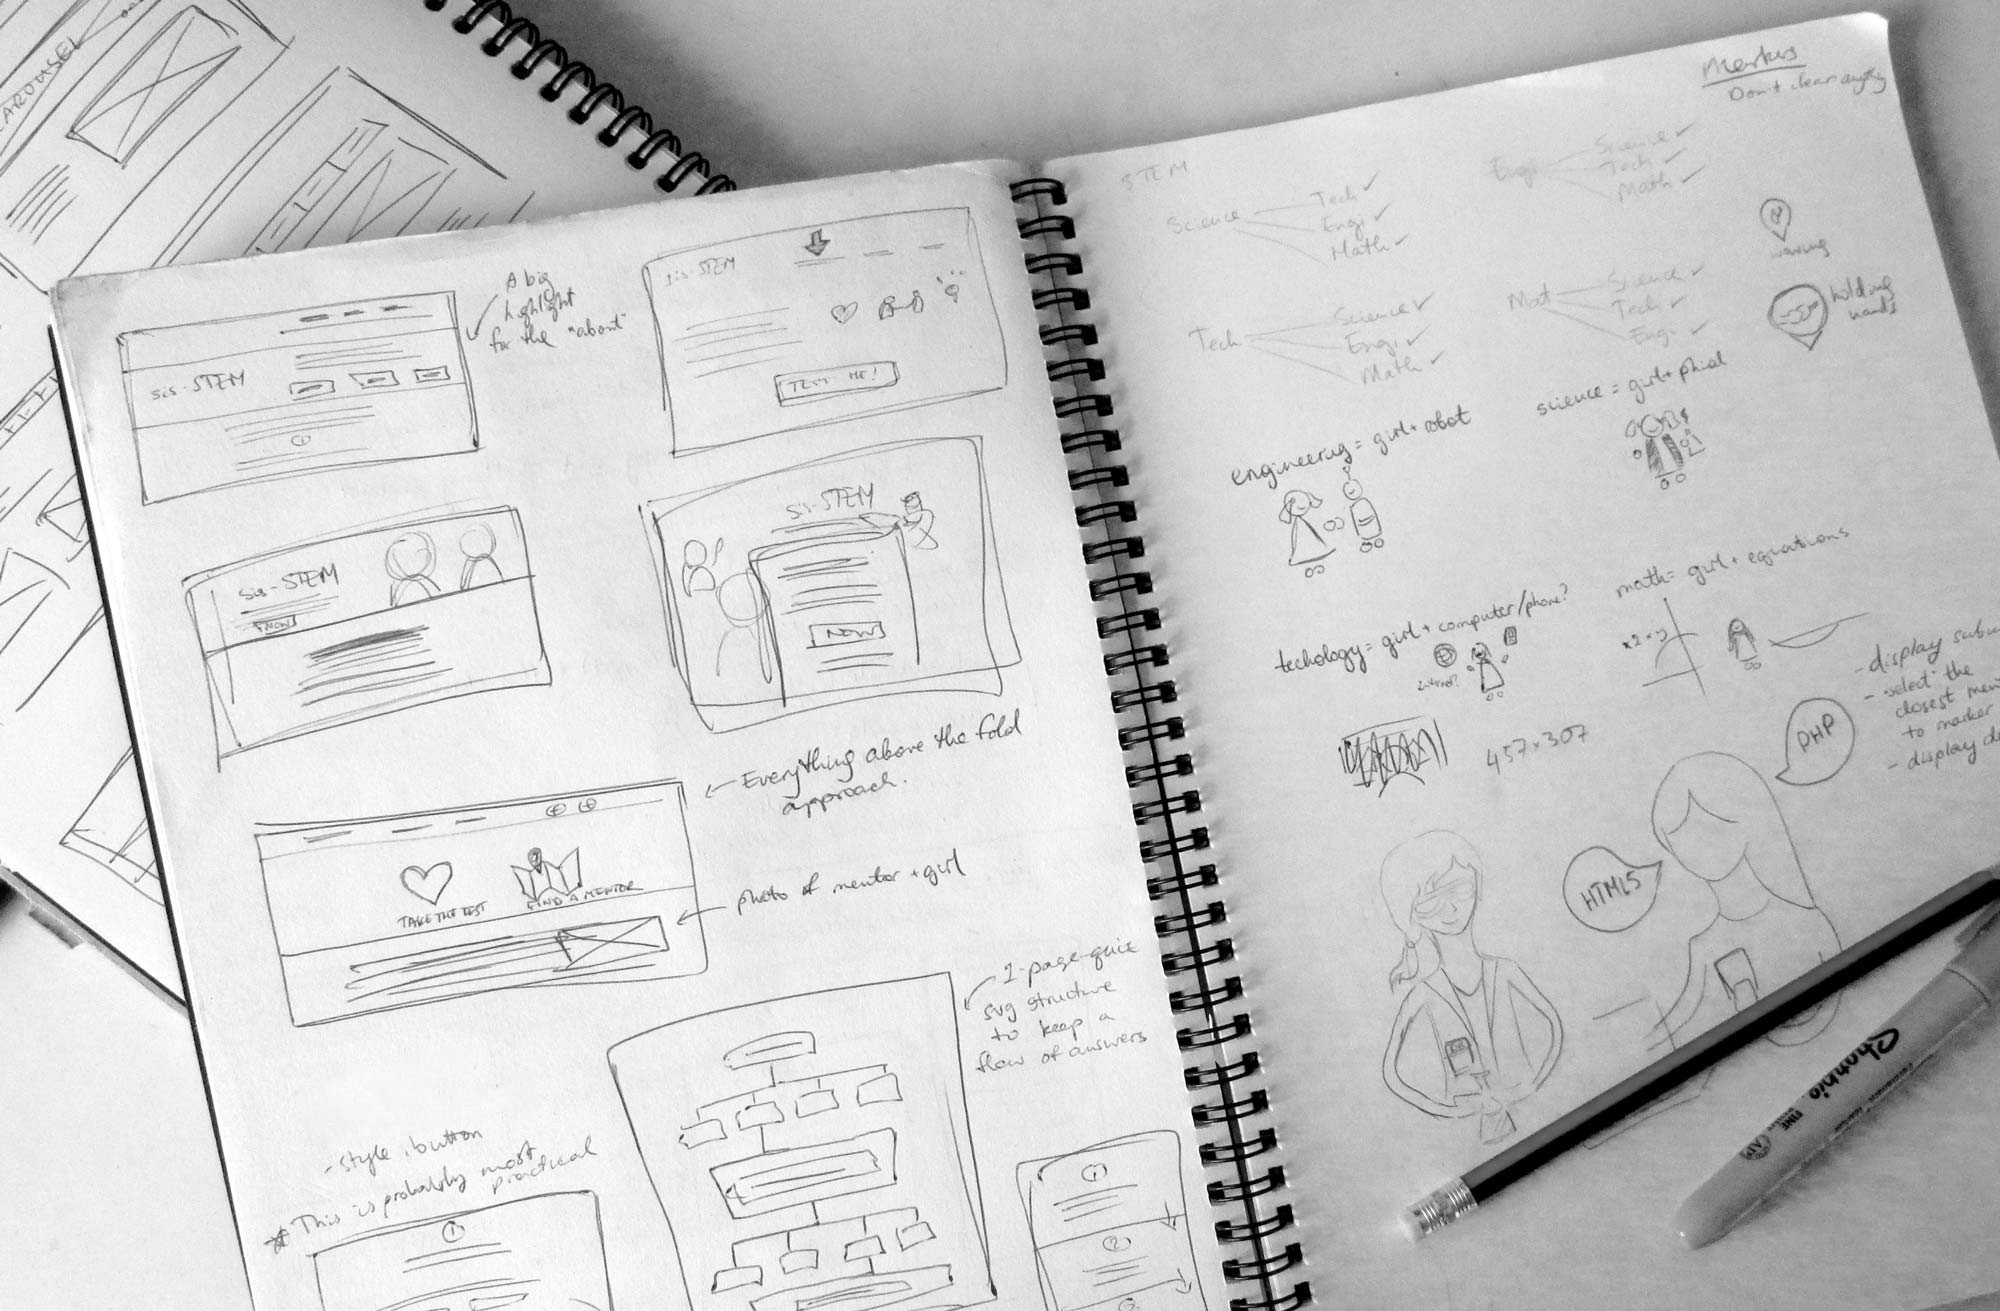 CAROUSEL
A big
highlight
for the "about"
sis-STEM
sis-STEM
TEST ME!
sis-STEM
NOW
sis-STEM
NOW
Everything above the fold
approach.
TAKE THE TEST
FIND A MENTOR
photo of mentor + girl
svg structure
to keep a
flow of answers
- style, button
* This is probably most
practical
1
1
2
Don't clean
STEM
Science
Tech ✓
Engi ✓
Math ✓
Engi
Science ✓
Tech ✓
Math ✓
Tech
Science ✓
Engi ✓
Math ✓
Mat
Science ✓
Tech ✓
Engi ✓
waving
holding
hands
engineering = girl + robot
science = girl + phial
techology = girl + computer/phone?
internet?
math = girl + equations
457 x 307
- display
- "select" the
closest
to marker
- display
PHP
HTML5
Sharpie
FINE